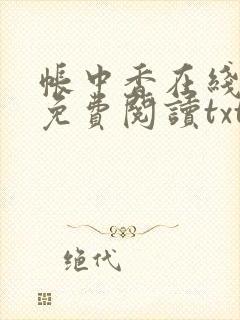 帳中香在綫
免費閱讀txt
绝代